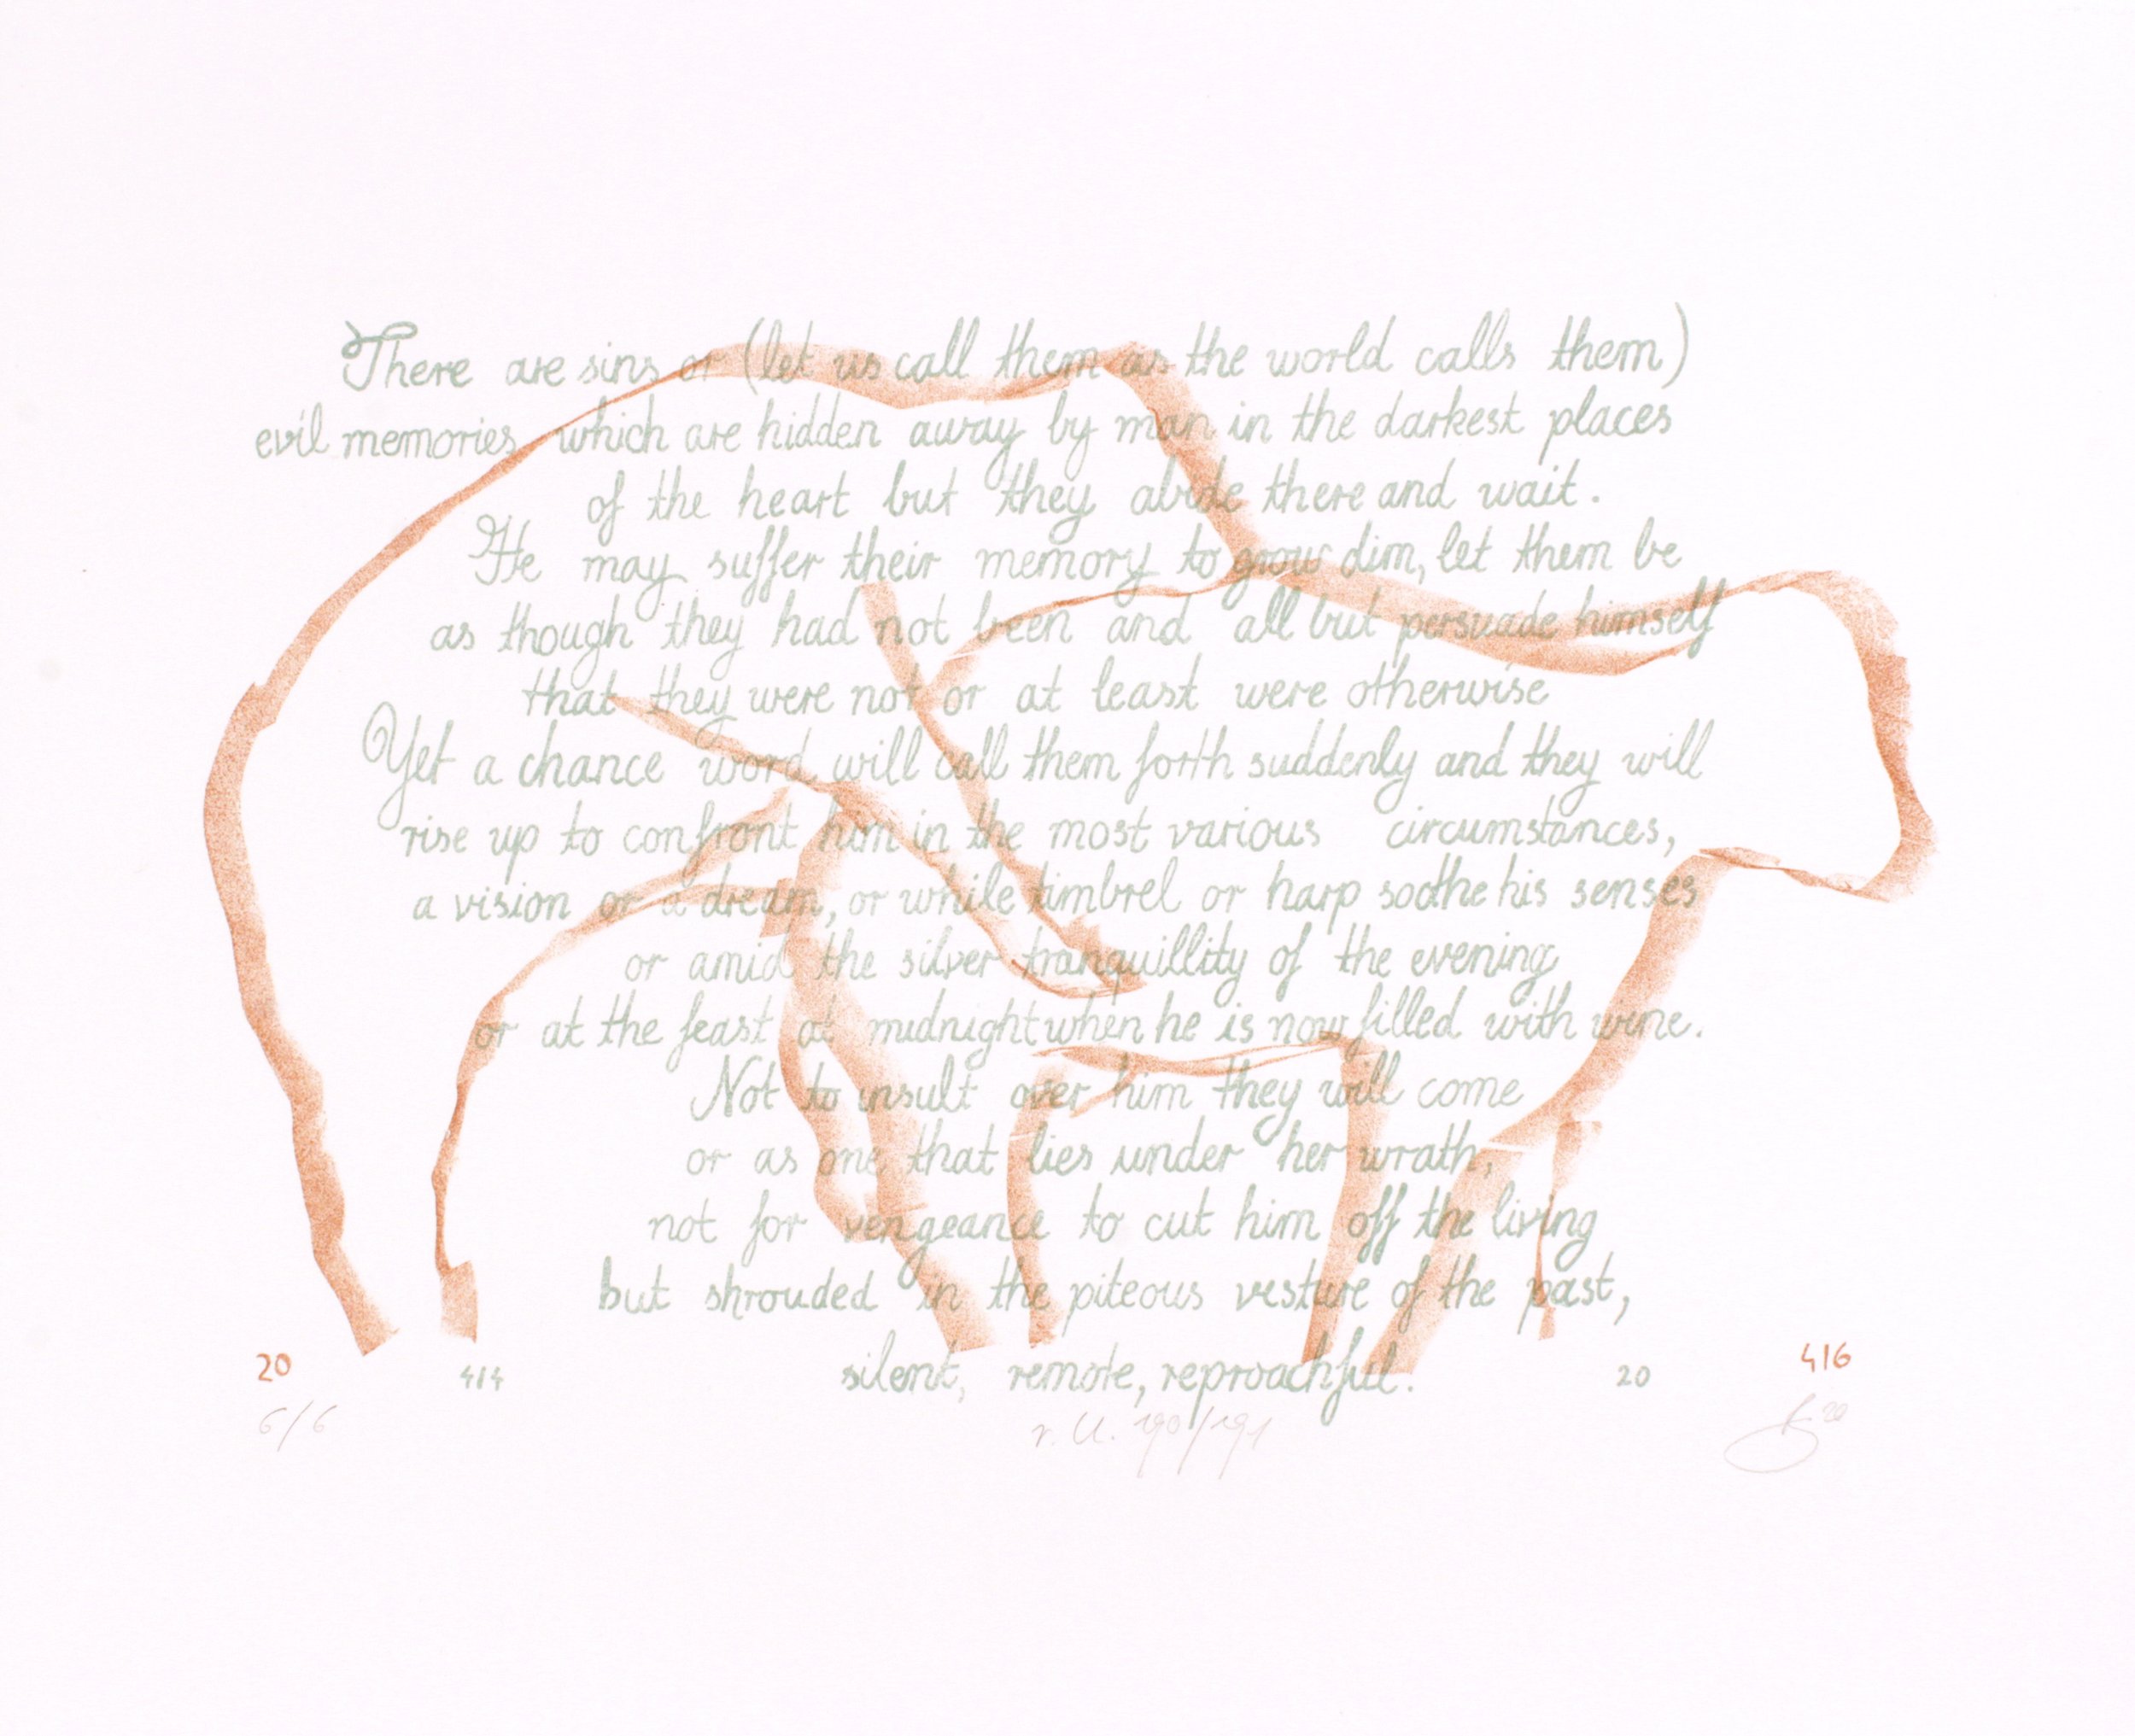 There are sins or (let us call them as the world calls them)
evil memories which are hidden away by man in the darkest places
of the heart but they abide there and wait.
He may suffer their memory to grow dim, let them be
as though they had not been and all but persuade himself
that they were not or at least were otherwise
Yet a chance word will call them forth suddenly and they will
rise up to confront him in the most various circumstances,
a vision or a dream, or while timbrel or harp soothe his senses
or amid the silver tranquillity of the evening
or at the feast at midnight when he is now filled with wine.
Not to insult over him they will come
or as one that lies under her wrath,
not for vengeance to cut him off the living
but shrouded in the piteous vesture of the past,
silent, remote, reproachful.
20 414 20 416
6/6 190/191 20